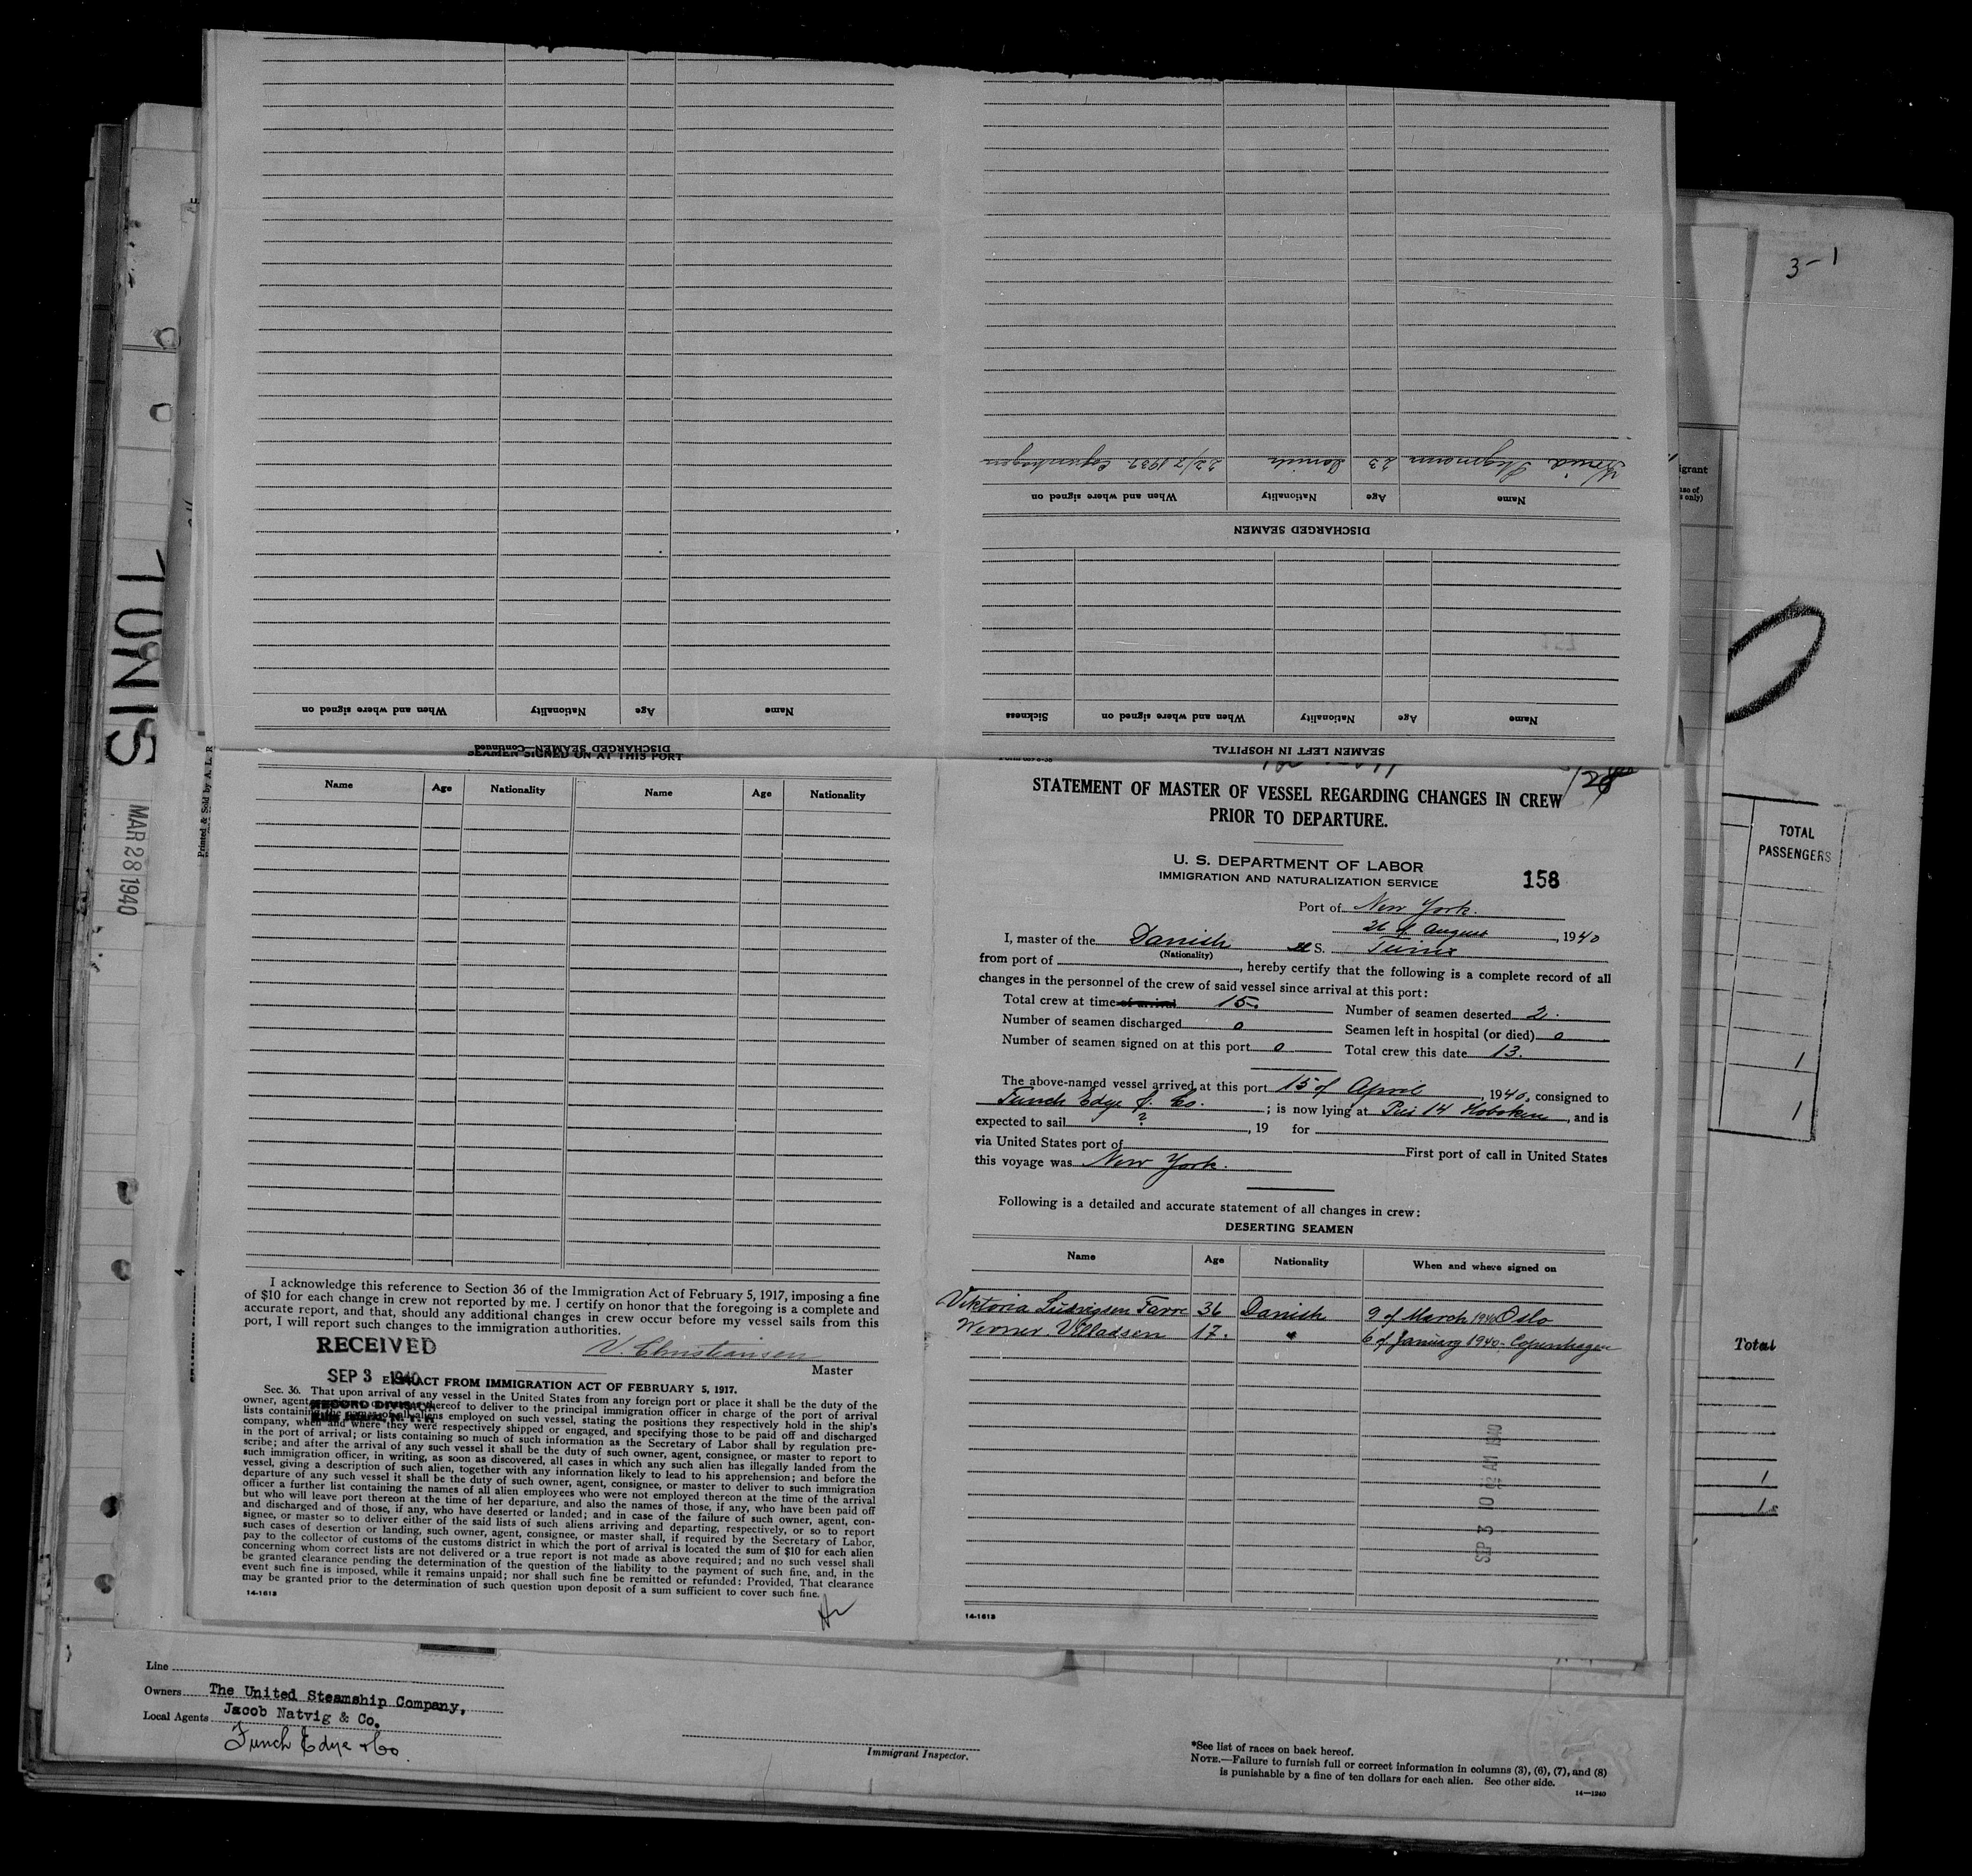 3-1
DISCHARGED SEAMEN—Continued
Name Age Nationality When and where signed on
SEAMEN LEFT IN HOSPITAL
Name Age Nationality When and where signed on Sickness
DISCHARGED SEAMEN
Name Age Nationality When and where signed on
23 Danish 22/7 1939. Copenhagen
TUNIS
MAR 28 1940
Printed & Sold by A. L. R
SEAMEN SIGNED ON AT THIS PORT
Name Age Nationality Name Age Nationality
I acknowledge this reference to Section 36 of the Immigration Act of February 5, 1917, imposing a fine
of $10 for each change in crew not reported by me. I certify on honor that the foregoing is a complete and
accurate report, and that, should any additional changes in crew occur before my vessel sails from this
port, I will report such changes to the immigration authorities.
RECEIVED
V. Christiansen
Master
SEP 3 1940
EXTRACT FROM IMMIGRATION ACT OF FEBRUARY 5, 1917.
RECORD DIVISION
Sec. 36. That upon arrival of any vessel in the United States from any foreign port or place it shall be the duty of the
owner, agent, thereof to deliver to the principal immigration officer in charge of the port of arrival
lists containing the names of all aliens employed on such vessel, stating the positions they respectively hold in the ship's
company, when and where they were respectively shipped or engaged, and specifying those to be paid off and discharged
in the port of arrival; or lists containing so much of such information as the Secretary of Labor shall by regulation pre-
scribe; and after the arrival of any such vessel it shall be the duty of such owner, agent, consignee, or master to report to
such immigration officer, in writing, as soon as discovered, all cases in which any such alien has illegally landed from the
vessel, giving a description of such alien, together with any information likely to lead to his apprehension; and before the
departure of any such vessel it shall be the duty of such owner, agent, consignee, or master to deliver to such immigration
officer a further list containing the names of all alien employees who were not employed thereon at the time of the arrival
but who will leave port thereon at the time of her departure, and also the names of those, if any, who have been paid off
and discharged and of those, if any, who have deserted or landed; and in case of the failure of such owner, agent, con-
signee, or master so to deliver either of the said lists of such aliens arriving and departing, respectively, or so to report
such cases of desertion or landing, such owner, agent, consignee, or master shall, if required by the Secretary of Labor,
pay to the collector of customs of the customs district in which the port of arrival is located the sum of $10 for each alien
concerning whom correct lists are not delivered or a true report is not made as above required; and no such vessel shall
be granted clearance pending the determination of the question of the liability to the payment of such fine, and, in the
event such fine is imposed, while it remains unpaid; nor shall such fine be remitted or refunded: Provided, That clearance
may be granted prior to the determination of such question upon deposit of a sum sufficient to cover such fine.
14-1613
STATEMENT OF MASTER OF VESSEL REGARDING CHANGES IN CREW
PRIOR TO DEPARTURE.
U. S. DEPARTMENT OF LABOR
IMMIGRATION AND NATURALIZATION SERVICE
158
Port of New York.
of August, 1940
I, master of the Danish S. Tunis
(Nationality)
from port of , hereby certify that the following is a complete record of all
changes in the personnel of the crew of said vessel since arrival at this port:
Total crew at time of arrival 15. Number of seamen deserted 2.
Number of seamen discharged 0 Seamen left in hospital (or died) 0
Number of seamen signed on at this port 0 Total crew this date 13.
The above-named vessel arrived at this port 15 of April, 1940, consigned to
Funch Edye & Co. ; is now lying at Pier 14 Hoboken, and is
expected to sail ?, 19 for
via United States port of First port of call in United States
this voyage was New York.
Following is a detailed and accurate statement of all changes in crew:
DESERTING SEAMEN
Name Age Nationality When and where signed on
Viktoria Ludvigsen 36 Danish 9 of March 1940 Oslo
Werner Villadsen 17. " 6 of January 1940. Copenhagen
SEP 3 10 AM 1940
14-1613
igrant
use of
s only)
TOTAL
PASSENGERS
1
1
Total
1
1
Line
Owners The United Steamship Company,
Local Agents Jacob Natvig & Co.
Funch Edye & Co.
Immigrant Inspector.
*See list of races on back hereof.
NOTE.—Failure to furnish full or correct information in columns (3), (6), (7), and (8)
is punishable by a fine of ten dollars for each alien. See other side.
14-1240